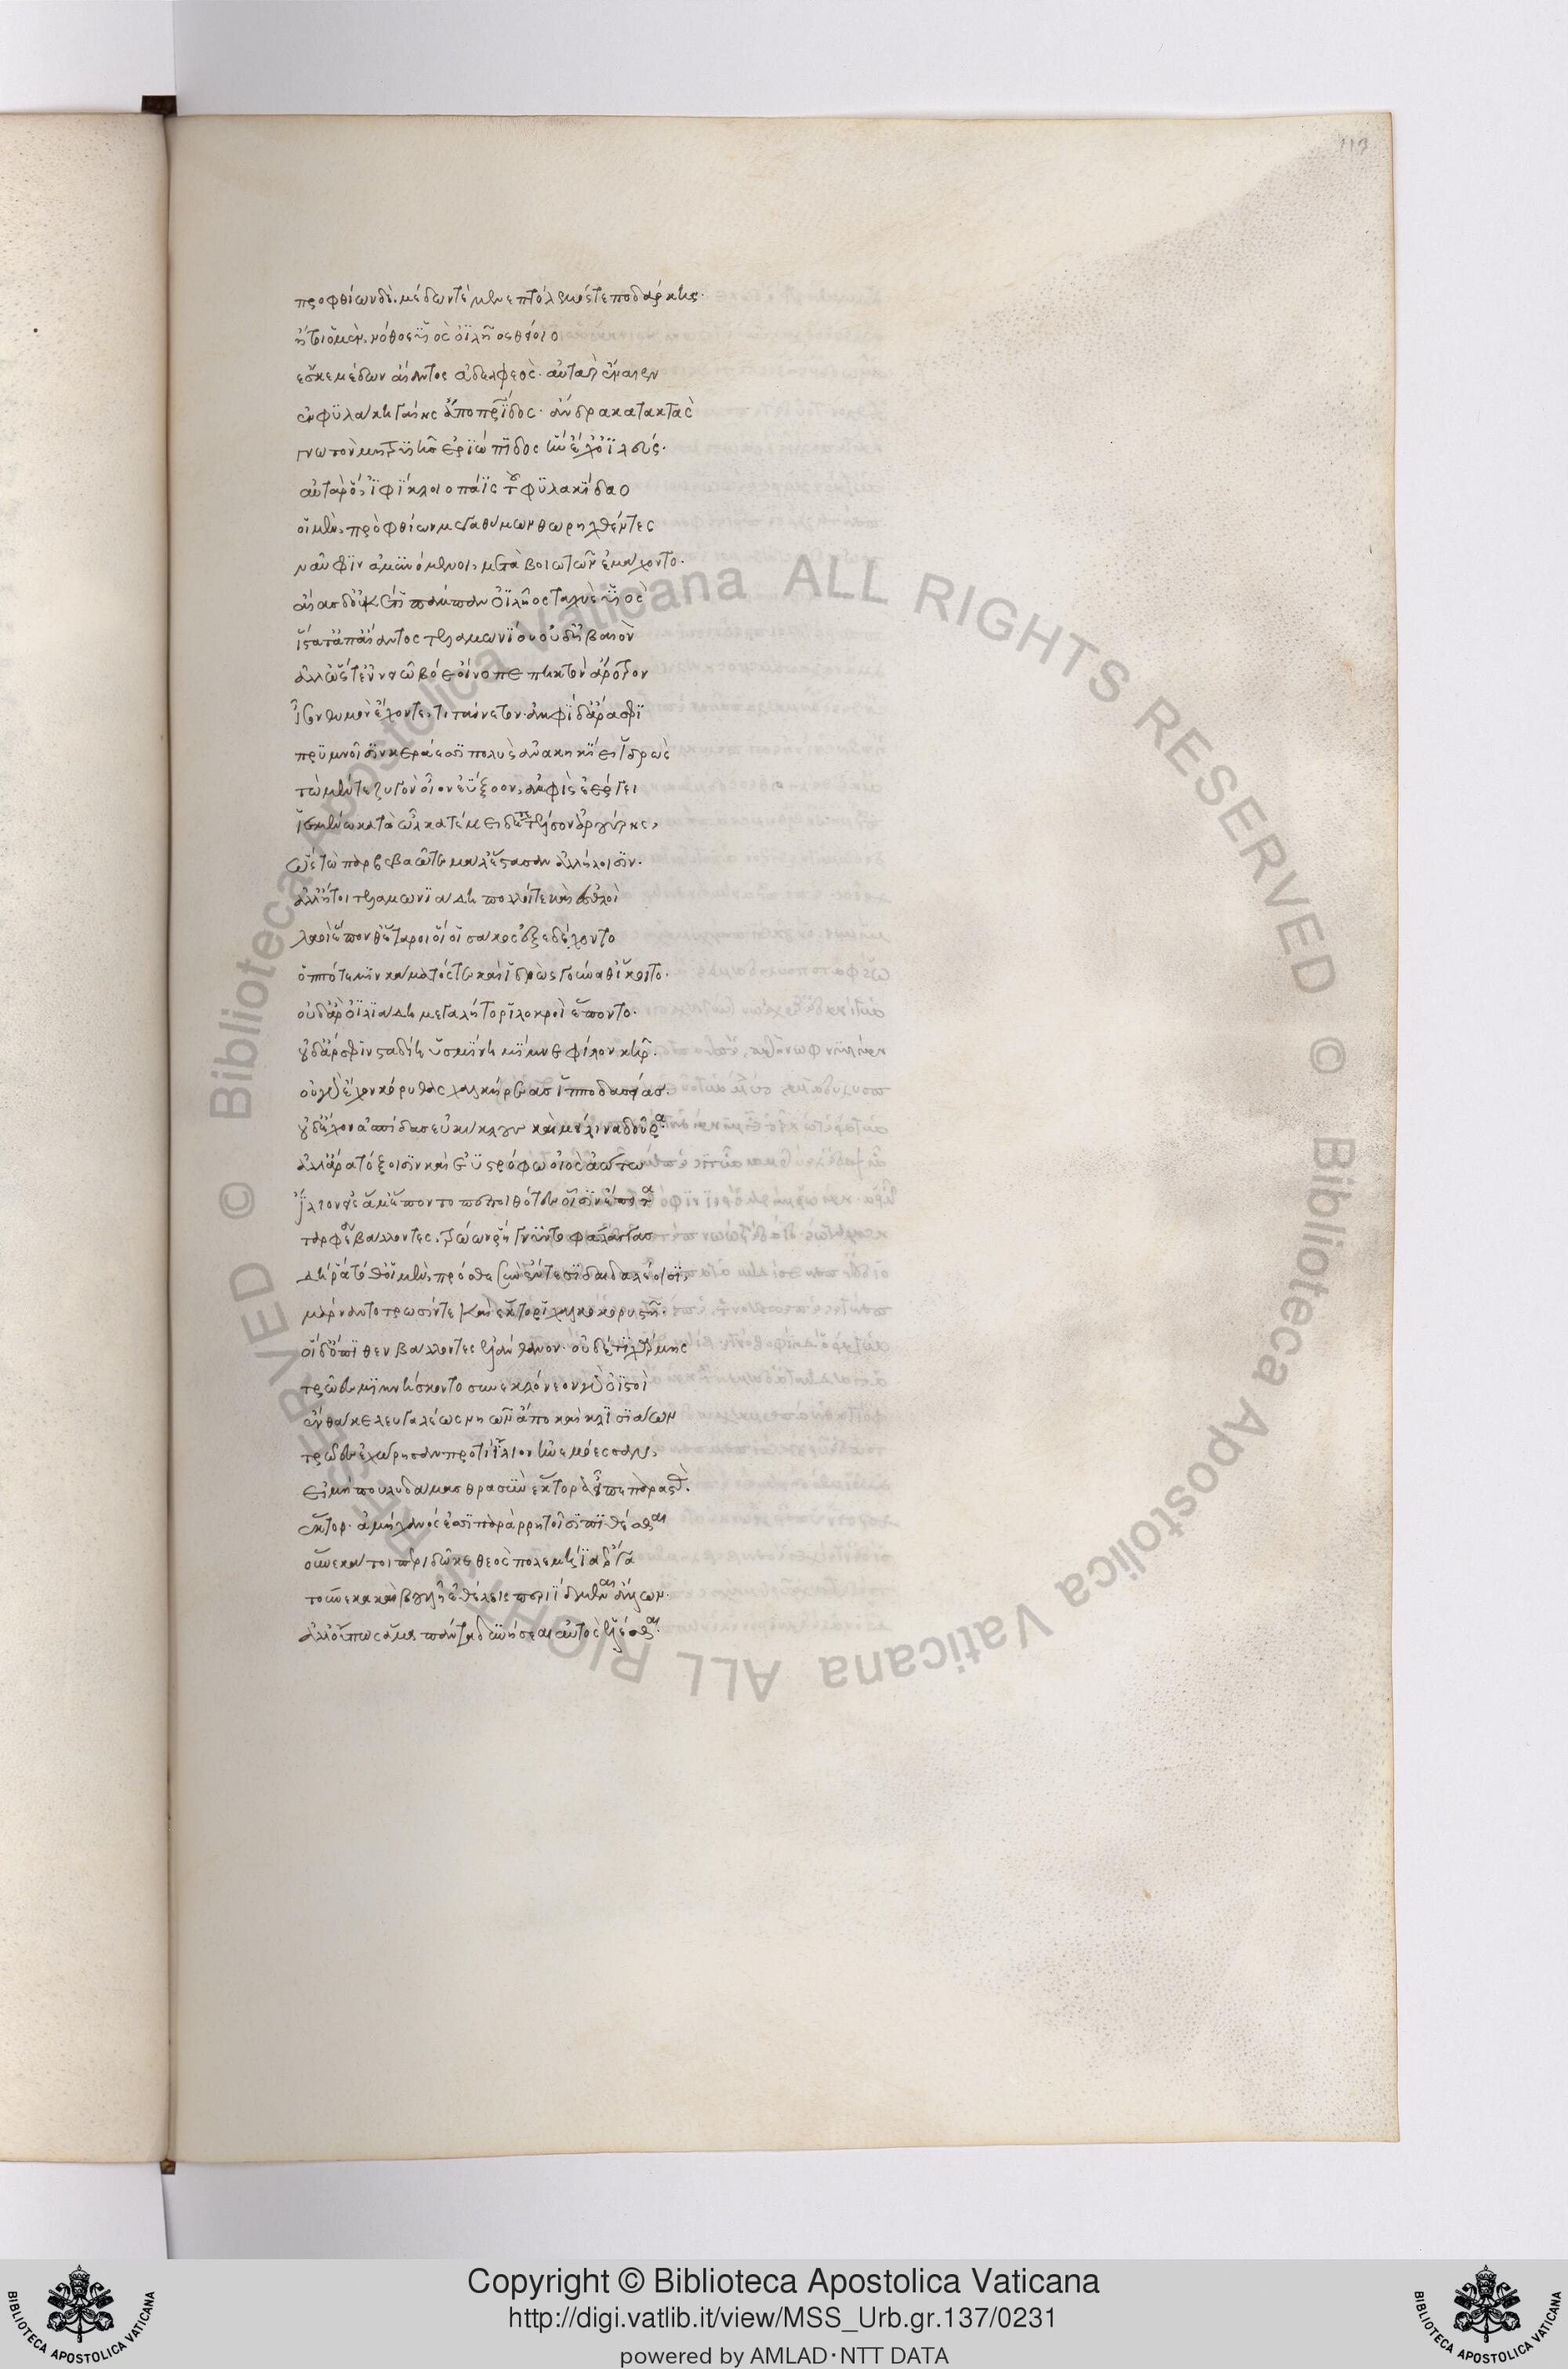 προ φθίων δὲ μέδων τὲ μενεπτόλεμός τε ποδάρκης·
ἤτοι ὃ μὲν νόθος υἱὸς ὀϊλῆος θείοιο
ἔσκε μέδων αἴαντος ἀδελφεὸς· αὐτὰρ ἔναιεν
ἐν φυλάκη γαίης ἄπο πατρίδος· ἄνδρα κατακτὰς
γνωτὸν μητρυιῆς ἐριώπιδος ἣν ἔχ' ὀϊλεύς·
αὐτὰρ ὃ, ἰφίκλοιο πάϊς τοῦ φυλακίδαο
οἳ μὲν, πρὸ φθίων μεγαθύμων θωρηχθέντες
ναῦφιν ἀμυνόμενοι, μετὰ βοιωτῶν ἐμάχοντο·
αἴας δ' οὐκέτι πάμπαν ὀϊλῆος ταχὺς υἱὸς
ἵστατ' ἀπ' αἴαντος τελαμωνίου οὐδ' ἠβαιὸν
ἀλλ' ὥς τ' ἐν νειῶ βόε οἴνοπε πηκτὸν ἄροτρον
ἶσον θυμὸν ἔχοντε, τιταίνετον· ἀμφὶ δ' ἄρά σφι
πρυμνοῖσιν κεράεσσι πολὺς ἀνακηκίει ἱδρὼς
τὼ μέν τε ζυγὸν οἶον ἐΰξοον, ἀμφὶς ἐέργει
ἱεμένω κατὰ ὦλκα τέμει δέ τε τέλσον ἀρούρης,
ὣς τὼ παρβεβαῶτε μάλ' ἕστασαν ἀλλήλοισιν·
ἀλλ' ἤτοι τελαμωνιάδη πολλοί τε καὶ ἐσθλοὶ
λαοὶ ἕπονθ' ἕταροι οἵ οἱ σάκος ἐξεδέχοντο
ὁππότε μιν κάματός τε καὶ ἱδρὼς γούναθ' ἵκοιτο·
οὐδ' ἄρ' ὀϊλιάδη μεγαλήτορι λοκροὶ ἕποντο·
οὐ γάρ σφιν σταδίη ὑσμίνη μίμνε φίλον κῆρ·
οὐ γὰρ ἔχον κόρυθας χαλκήρεας ἱπποδασείας·
οὐδ' ἔχον ἀσπίδας εὐκύκλους καὶ μείλινα δοῦρα·
ἀλλ' ἄρα τόξοισιν καὶ ἐϋστρόφω οἰὸς ἀώτω
ἴλιον εἰς ἅμ' ἕποντο πεποιθότες οἷσιν ἔπειτα
ταρφέα βάλλοντες, τρώων ῥήγνυντο φάλαγγας
δή ῥα τόθ' οἳ μὲν, πρόσθε σὺν ἔντεσι δαιδαλέοισι,
μάρναντο τρωσίν τε καὶ ἕκτορι χαλκοκορυστῆ·
οἳ δ' ὄπιθεν βάλλοντες ἐλάνθανον· οὐδέ τι χάρμης
τρῶες μιμνήσκοντο συνεκλόνεον γὰρ ὀϊστοὶ
ἔνθά κε λευγαλέως νηῶν ἄπο καὶ κλισιάων
τρῶες ἐχώρησαν προτὶ ἴλιον ἠνεμόεσσαν,
εἰ μὴ πουλυδάμας θρασὺν ἕκτορα εἶπε παραστὰς·
ἕκτορ· ἀμήχανός ἐσσι παραρρητοῖσι πιθέσθαι
οὕνεκά τοι περὶ δῶκε θεὸς πολεμήϊα ἔργα
τοὔνεκα καὶ βουλῆ ἐθέλεις περιίδμεναι ἄλλων·
ἀλλ' οὔ πως ἅμα πάντα δυνήσεαι αὐτὸς ἑλέσθαι·
Copyright © Biblioteca Apostolica Vaticana
http://digi.vatlib.it/view/MSS_Urb.gr.137/0231
powered by AMLAD·NTT DATA